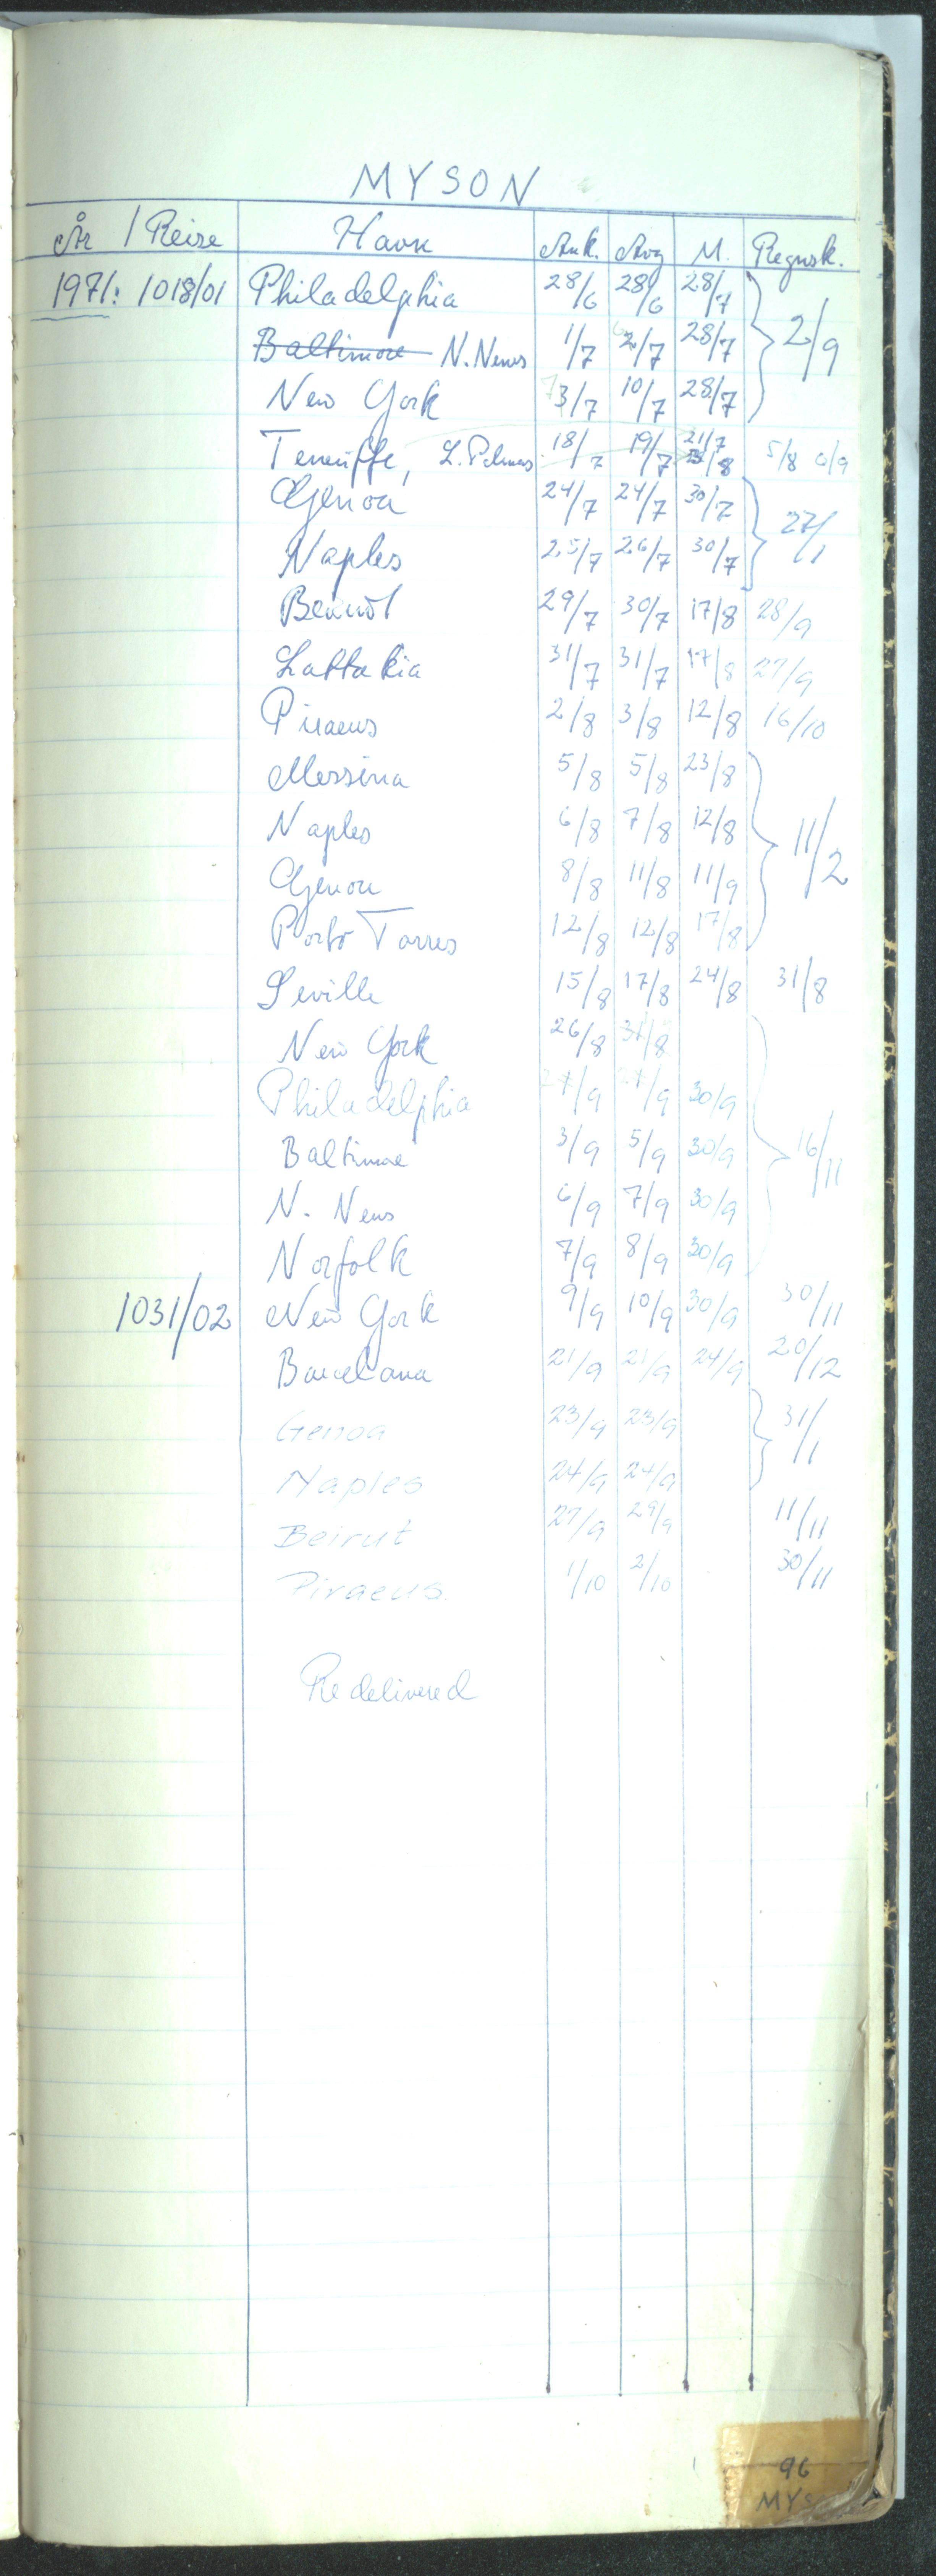 MYSON
År / Reise Havn Ank. Avg M. Regnsk.
1971: 1018/01 Philadelphia 28/6 28/6 28/7
Baltimore N. News 1/7 2/7 28/7 2/9
New York 3/7 10/7 28/7
Teneriffe, L. Palmas 18/7 19/7 21/7 5/8 6/9
Genoa 24/7 24/7 30/7
Naples 25/7 26/7 30/7 27/1
Beirut 29/7 30/7 17/8 28/9
Lattakia 31/7 31/7 17/8 27/9
Piraeus 2/8 3/8 12/8 16/10
Messina 5/8 5/8 23/8
Naples 6/8 7/8 12/8 11/2
Genoa 8/8 11/8 11/9
Porto Torres 12/8 12/8 17/8
Seville 15/8 17/8 24/8 31/8
New York 26/8 31/8
Philadelphia 30/9
Baltimore 3/9 5/9 30/9 16/11
N. News 6/9 7/9 30/9
Norfolk 7/9 8/9 30/9
1031/02 New York 9/9 10/9 30/9 30/11
Barcelona 21/9 21/9 24/9 20/12
Genoa 23/9 23/9 31/1
Naples 24/9 24/9
Beirut 27/9 29/9 11/11
Piraeus. 1/10 2/10 30/11
Redelivered
96
MYS